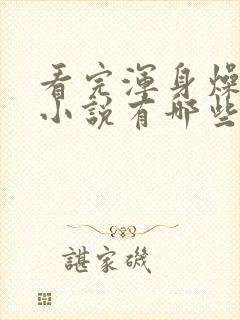 看完渾身燥
小說有哪些
諶家磯